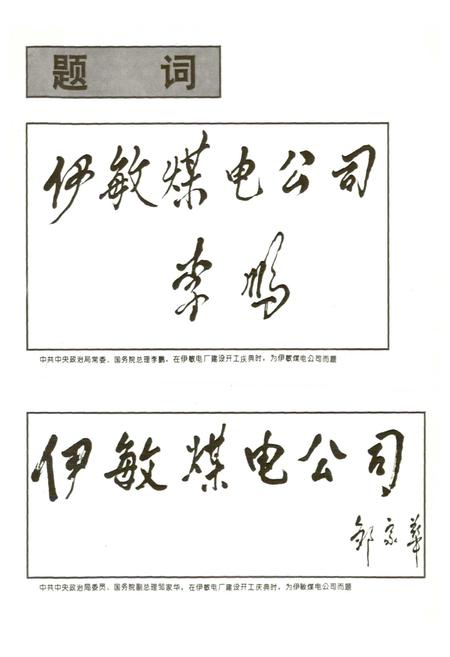 题 词
伊敏煤电公司
李鹏
中共中央政治局常委、国务院总理李鹏，在伊敏电厂建设开工庆典时，为伊敏煤电公司而题
伊敏煤电公司
邹家华
中共中央政治局委员、国务院副总理邹家华，在伊敏电厂建设开工庆典时，为伊敏煤电公司而题